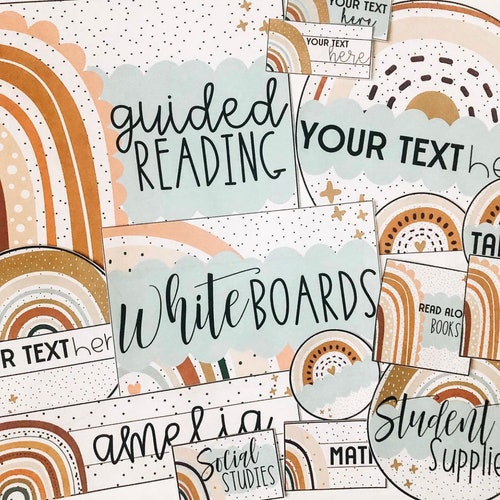 YOUR TEXT
here
YOUR TEXT
here
guided
READING
YOUR TEXT here
WhiteBOARDS
READ ALO
BOOKS
TA
R TEXT here
amelia
Student
Supplie
Social
STUDIES
MAT